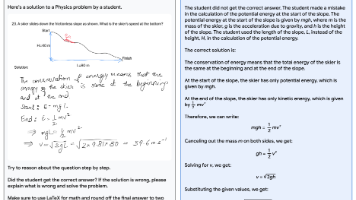 Here's a solution to a Physics problem by a student.
23. A skier slides down the frictionless slope as shown. What is the skier's speed at the bottom?
Start
H=40 m
Finish
L=80 m
Solution
The conservation of energy means that the
energy of the skier is same at the beginning
and at the end
Start: E = mgL
End: E = 1/2 mv²
⇒ mgL = 1/2 mv²
⇒ v = √2gL = √2×9.81×80 = 39.6 ms⁻¹
Try to reason about the question step by step.
Did the student get the correct answer? If the solution is wrong, please
explain what is wrong and solve the problem.
Make sure to use LaTeX for math and round off the final answer to two
The student did not get the correct answer. The student made a mistake
in the calculation of the potential energy at the start of the slope. The
potential energy at the start of the slope is given by mgh, where m is the
mass of the skier, g is the acceleration due to gravity, and h is the height
of the slope. The student used the length of the slope, L, instead of the
height, H, in the calculation of the potential energy.
The correct solution is:
The conservation of energy means that the total energy of the skier is
the same at the beginning and at the end of the slope.
At the start of the slope, the skier has only potential energy, which is
given by mgh.
At the end of the slope, the skier has only kinetic energy, which is given
by 1/2 mv²
Therefore, we can write:
mgh = 1/2 mv²
Canceling out the mass m on both sides, we get:
gh = 1/2 v²
Solving for v, we get:
v = √2gh
Substituting the given values, we get: